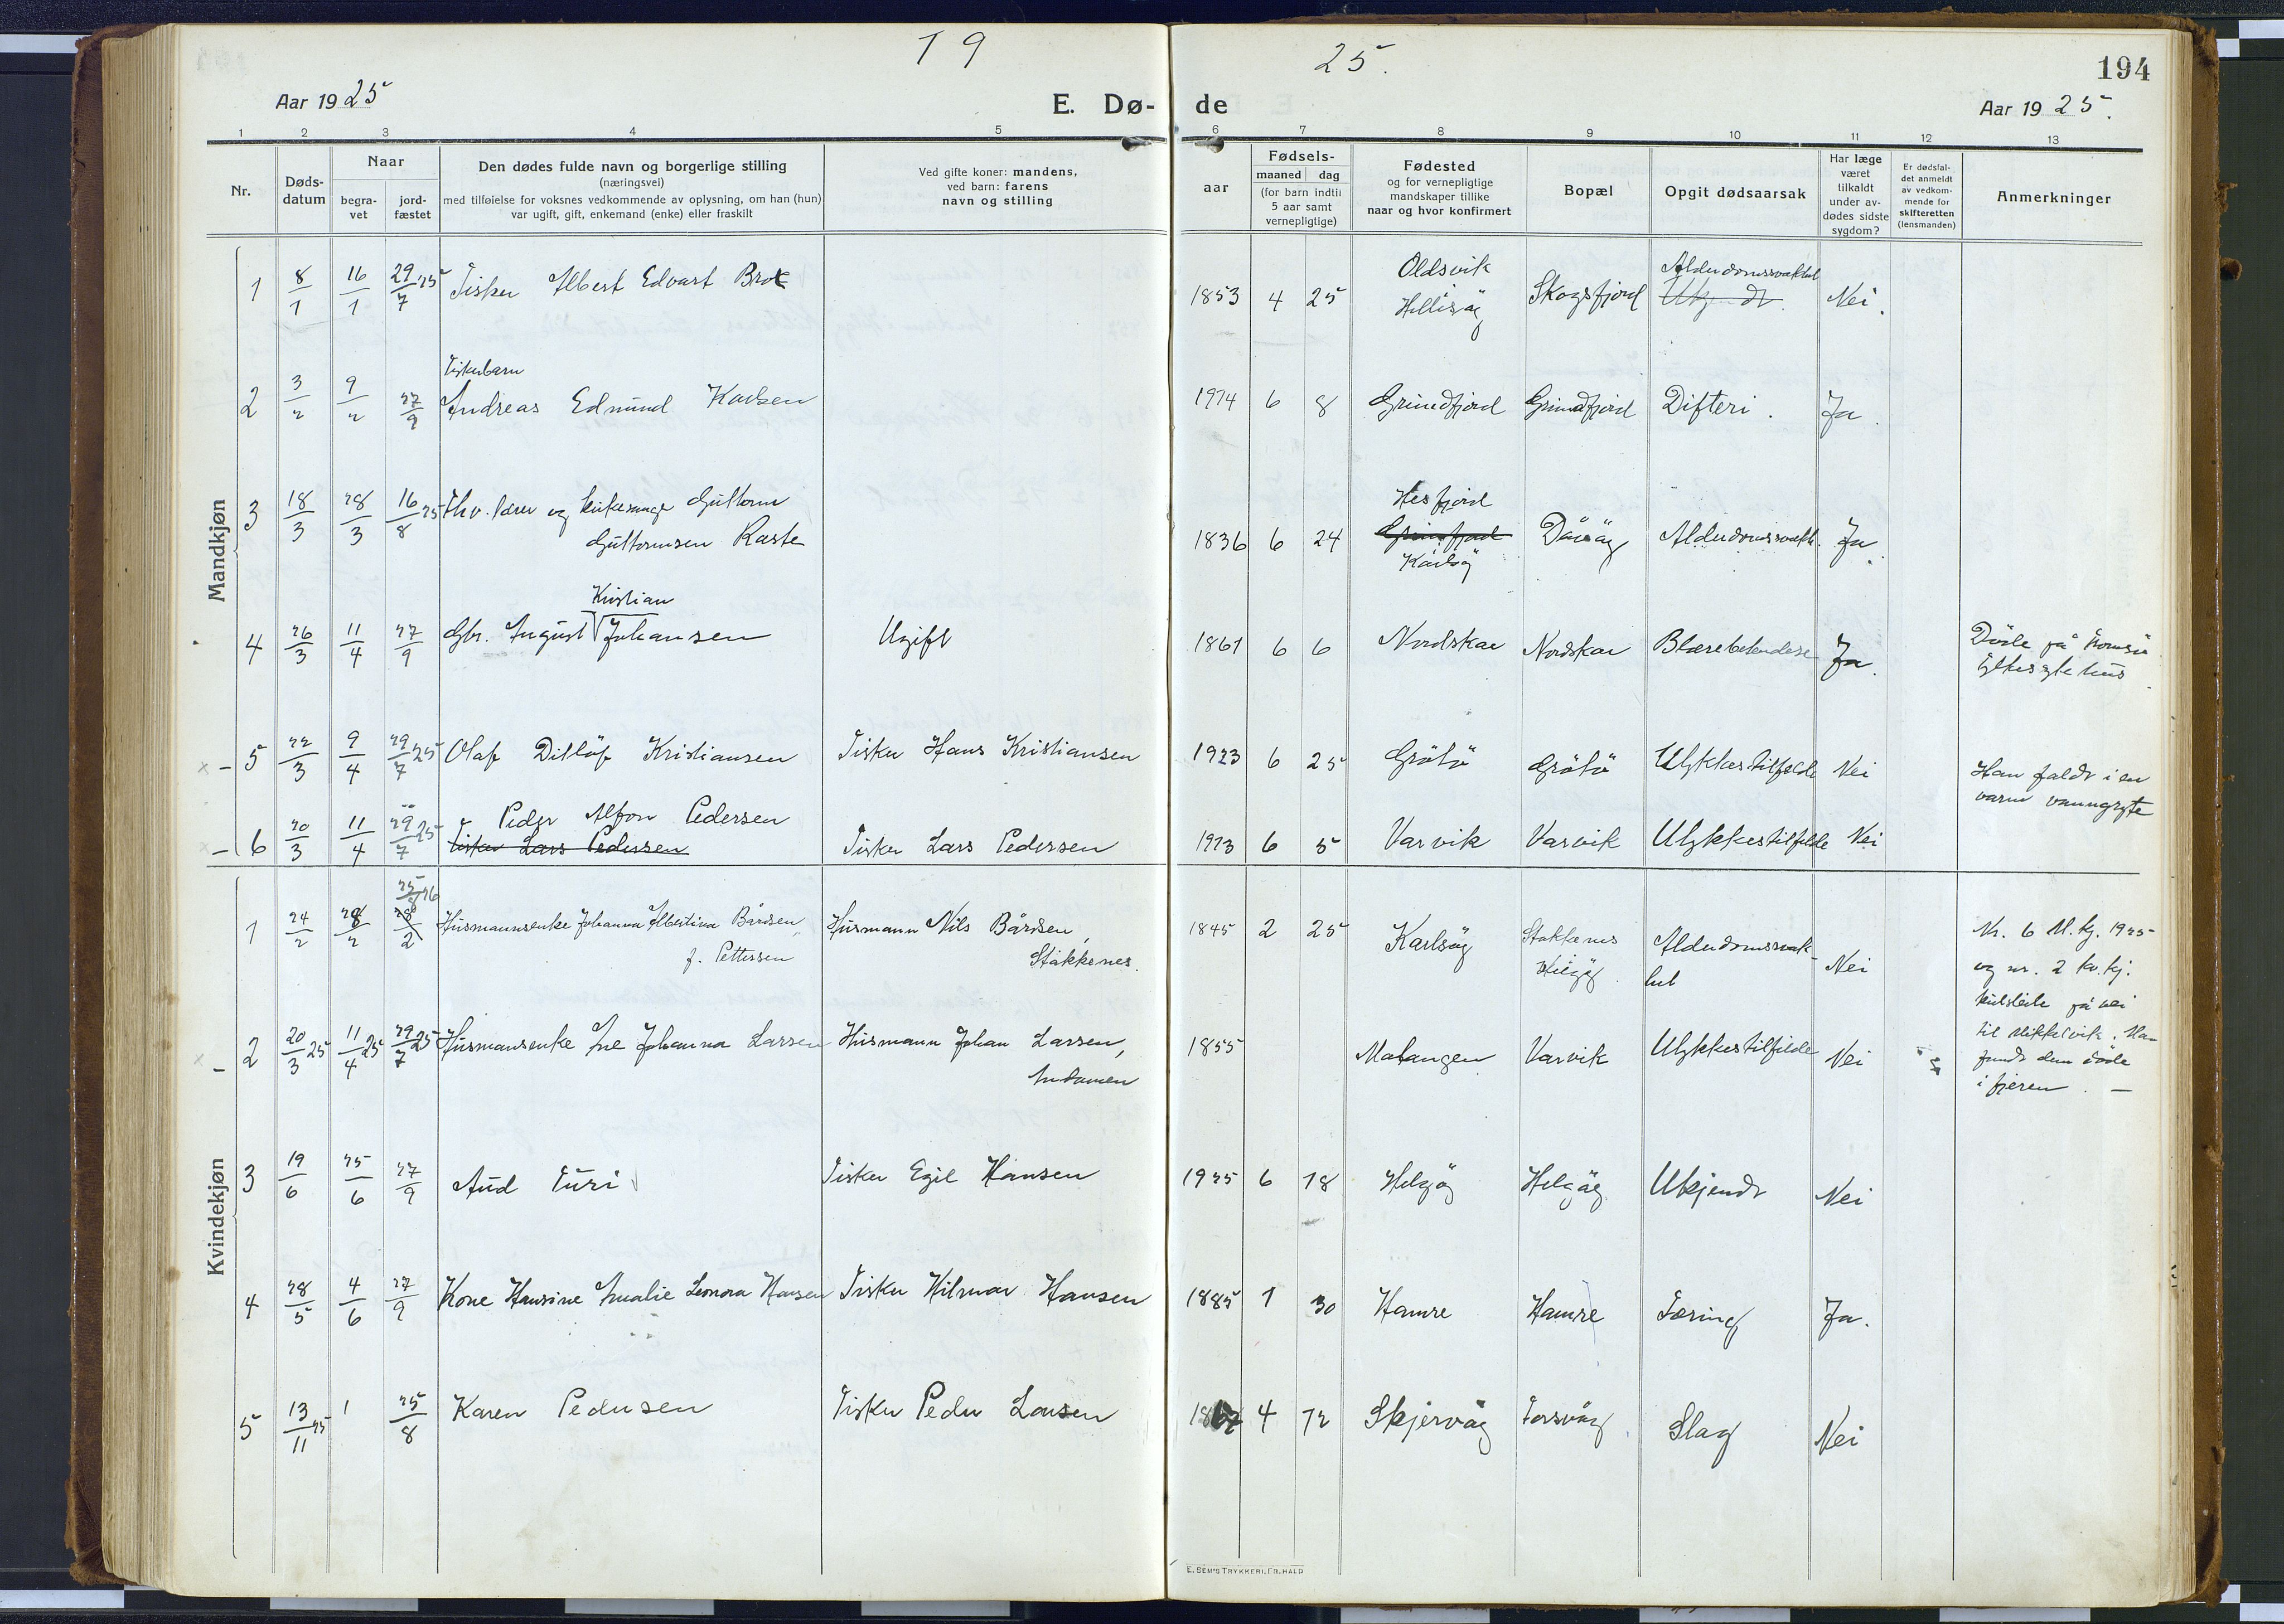 19 25.
194
Aar 1925 E. Dø- de Aar 1925.
1 2 3 4 5 6 7 8 9 10 11 12 13
Nr.
Døds-
datum
Naar
begra-
vet
jord-
fæstet
Den dødes fulde navn og borgerlige stilling
(næringsvei)
med tilføielse for voksnes vedkommende av oplysning, om han (hun)
var ugift, gift, enkemand (enke) eller fraskilt
Ved gifte koner: mandens,
ved barn: farens
navn og stilling
aar
Fødsels-
maaned dag
(for barn indtil
5 aar samt
vernepligtige)
Fødested
og for vernepligtige
mandskaper tillike
naar og hvor konfirmert
Bopæl
Opgit dødsaarsak
Har læge
været
tilkaldt
under av-
dødes sidste
sygdom?
Er dødsfal-
det anmeldt
av vedkom-
mende for
skifteretten
(lensmanden)
Anmerkninger
Mandkjøn
1 8/1 16/1 29/7 25 Fisker Albert Edvart Brox 1853 4 25 Oldsvik Helgøy Skogsfjord Alderdomssvakhet Nei.
2 3/2 9/2 27/9 Fiskerbarn
Andreas Edmund Karlsen 1914 6 8 Grundfjord Grundfjord Difteri. Ja.
3 18/3 28/3 16/8 25 Fhv. lærer og kirkesanger Guttorm
Guttormsen Raste 1836 6 24 Hesfjord Karlsøy Alderdomssvakh. Ja.
4 26/3 11/4 27/9 Gbr. August Kristian Johansen Ugift 1861 6 6 Nordskar Nordskar Blærebetendese Ja. Døde på Tromsø
fylkessykehus.
5 22/3 9/4 29/7 25 Olaf Ditløf Kristiansen Fisker Hans Kristiansen 1923 6 25 Grøtø Grøtø Ulykkestilfelde Nei Han faldt i en
varm vanngryte
6 20/3 11/4 29/7 25 Peder Alfon Pedersen
Fisker Lars Pedersen Fisker Lars Pedersen 1913 6 5 Varvik Varvik Ulykkestilfelde Nei
Kvindekjøn
1 24/2 28/2 25/8 26 Husmannsenke Johanna Albertina Bårdsen
f. Pettersen Husmann Nils Bårdsen,
Stakkenes. 1845 2 25 Karlsøy Stakkenes Helgøy Alderdomssvak-
het Nei Nr. 6 M.kj. 1925
og nr. 2 kv. kj.
kulseilte på vei
til Mikkelvik. Man
fandt dem døde
i fjæren. —
2 20/3 25 11/4 25 29/7 25 Husmansenke Ane Johanna Larsen Husmann Johan Larsen, 1855 Malangen Varvik Ulykkestilfelde Nei
3 19/6 25/6 27/9 Aud Turi Fisker Egil Hansen 1925 6 18 Helgøy Helgøy Ukjendt Nei
4 28/5 4/6 27/9 Kone Hansine Amalie Leonora Hansen Fisker Hilmar Hansen 1885 1 30 Hamre Hamre Tæring Ja.
5 13/11 25 1 25/8 Karen Pedersen Fisker Peder Larsen 1867 4 12 Skjervøy Torsvåg Slag Nei
E. SEM'S TRYKKERI, FR.HALD